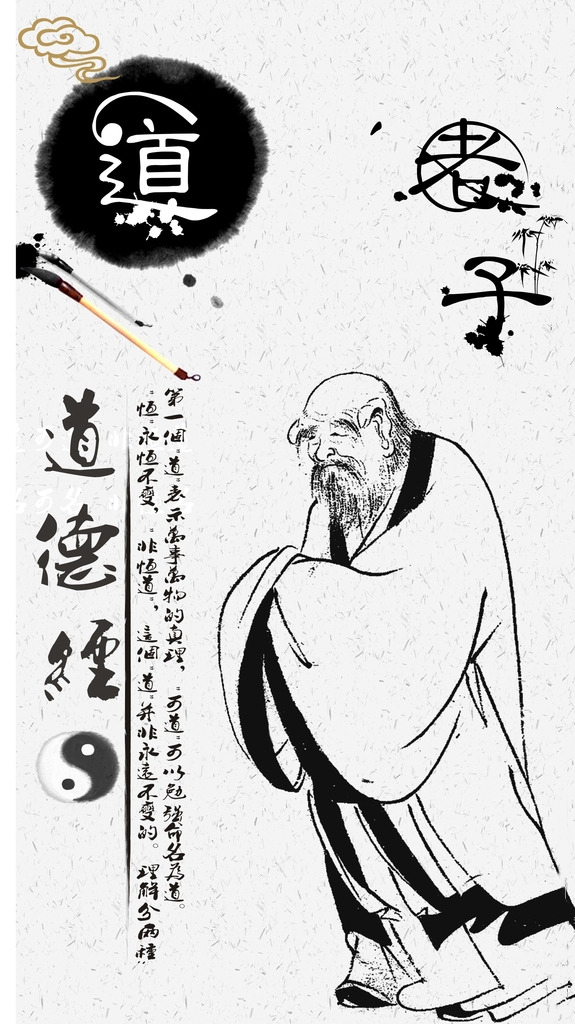 道
老子
道德經
第一個“道”表示萬事萬物的真理，“可道”可以勉強命名為道。
“恆”永恆不變，“非恆道”，這個“道”并非永遠不變的。理解分兩種”